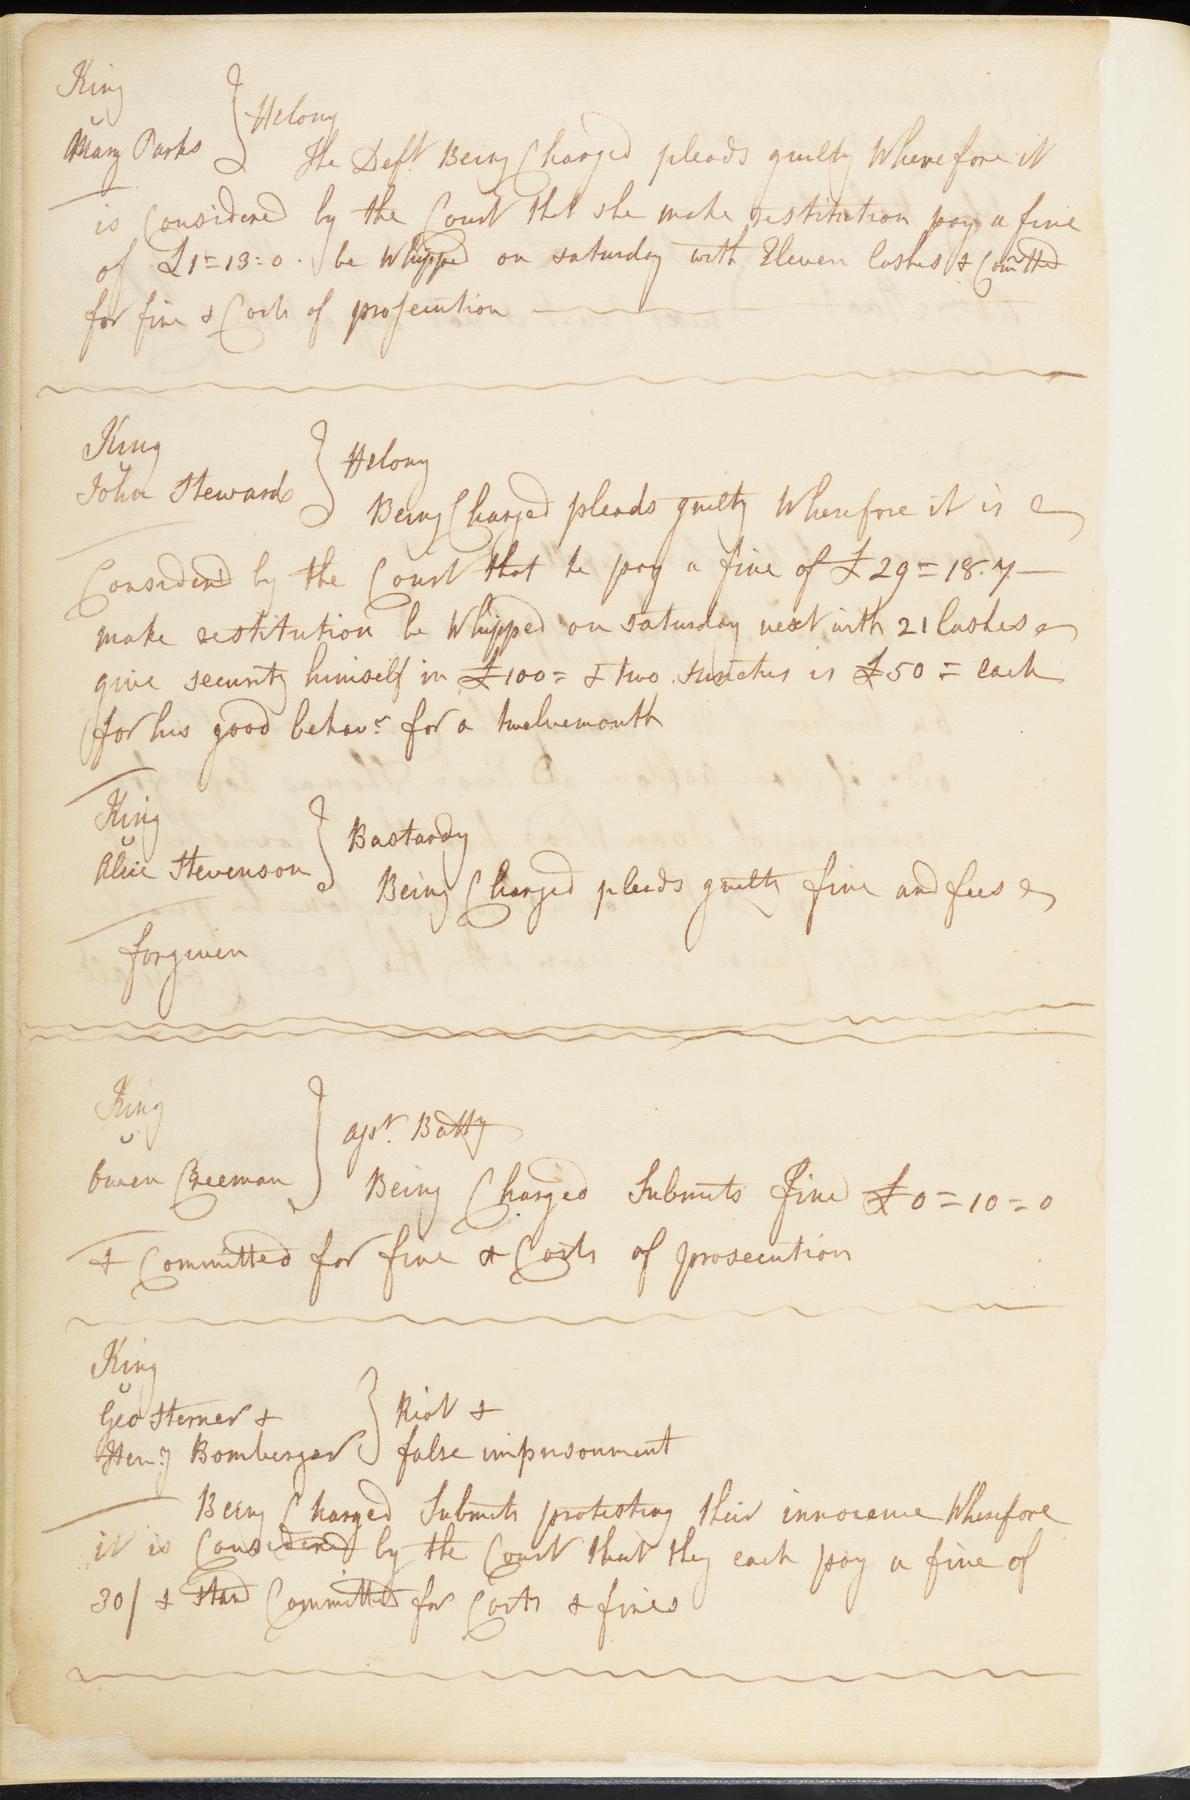 King
v
Mary Parks } Felony
The Deft. Being Charged pleads guilty Wherefore it
is Considered by the Court that she make restitution pay a fine
of £1=13=0. be Whipped on saturday with Eleven lashes & Comitted
for fine & Costs of prosecution
King
v
John Steward } Felony
Being Charged pleads guilty Wherefore it is
Considered by the Court that he pay a fine of £29=18.7
make restitution be Whipped on saturday next with 21 lashes
give security himself in £100= & two sureties is £50= each
for his good behavr. for a twelvemonth
King
v
Alice Stevenson } Bastardy
Being Charged pleads guilty fine and fees
forgiven
King
v
Owen Creeman } asst. Batty
Being Charged Submits fined £0=10=0
& Committed for fine & Costs of prosecution
King
v
Geo Sterner & } Riot &
Heny Bomberger false imprisonment
Being Charged Submits protesting their innocence Wherefore
it is Considered by the Court that they each pay a fine of
30/ & stand Committed for Costs & fines